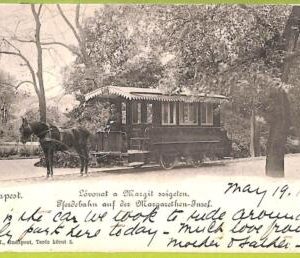 apest.
Lóvonat a Margit szigeten.
Pferdebahn auf der Margarethen-Insel.
May 19.
is the car we took to ride around
park here today - much love
., Budapest, Teréz körút 5.